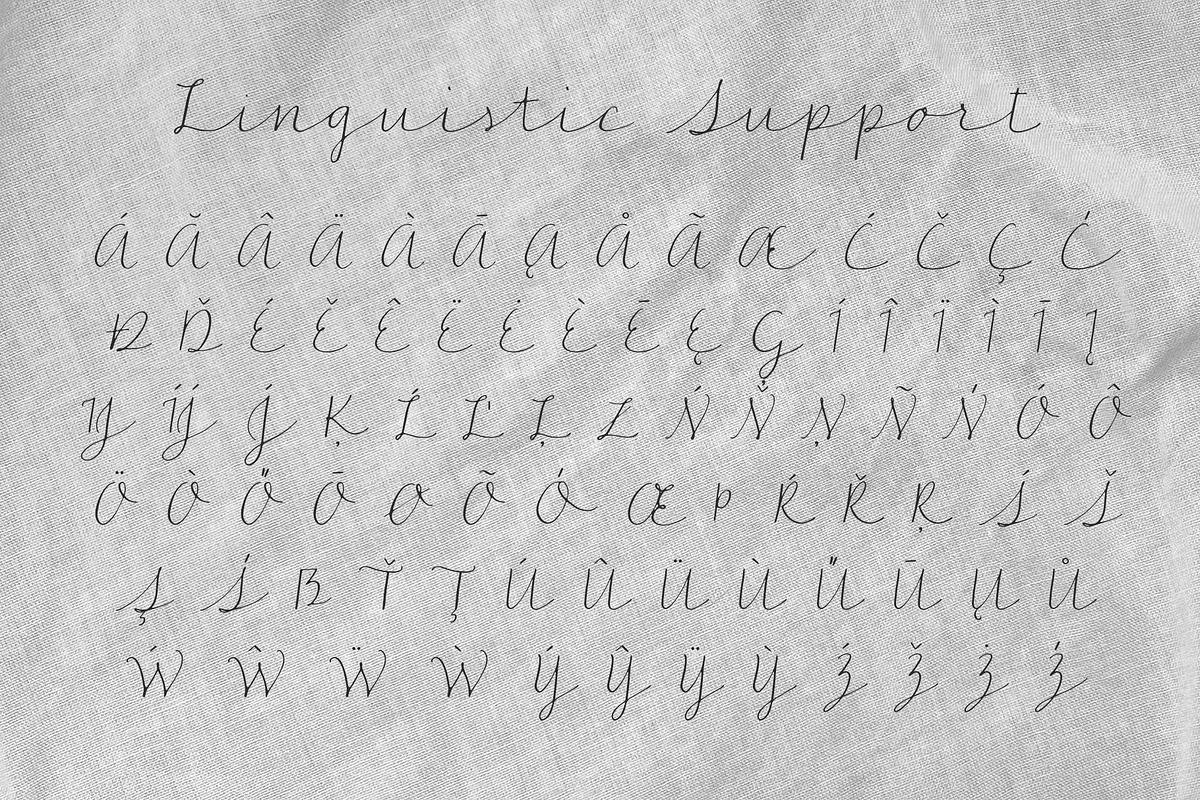 Linguistic Support
Á Ă Â Ä À Ā Ą Å Ã Æ Ć Č Ç Ć
Đ Ď É Ě Ê Ë Ė È Ē Ę Ģ Í Î Ï Ì Ī Į
IJ ÍJ́ J́ Ķ Ĺ Ľ Ļ Ł Ń Ň Ņ Ñ Ń Ó Ô
Ö Ò Ő Ō Ø Õ Ó Œ Þ Ŕ Ř Ŗ Ś Š
Ş Ś ß Ť Ţ Ú Û Ü Ù Ű Ū Ų Ů
Ẃ Ŵ Ẅ Ẁ Ý Ŷ Ÿ Ỳ Ź Ž Ż Ź